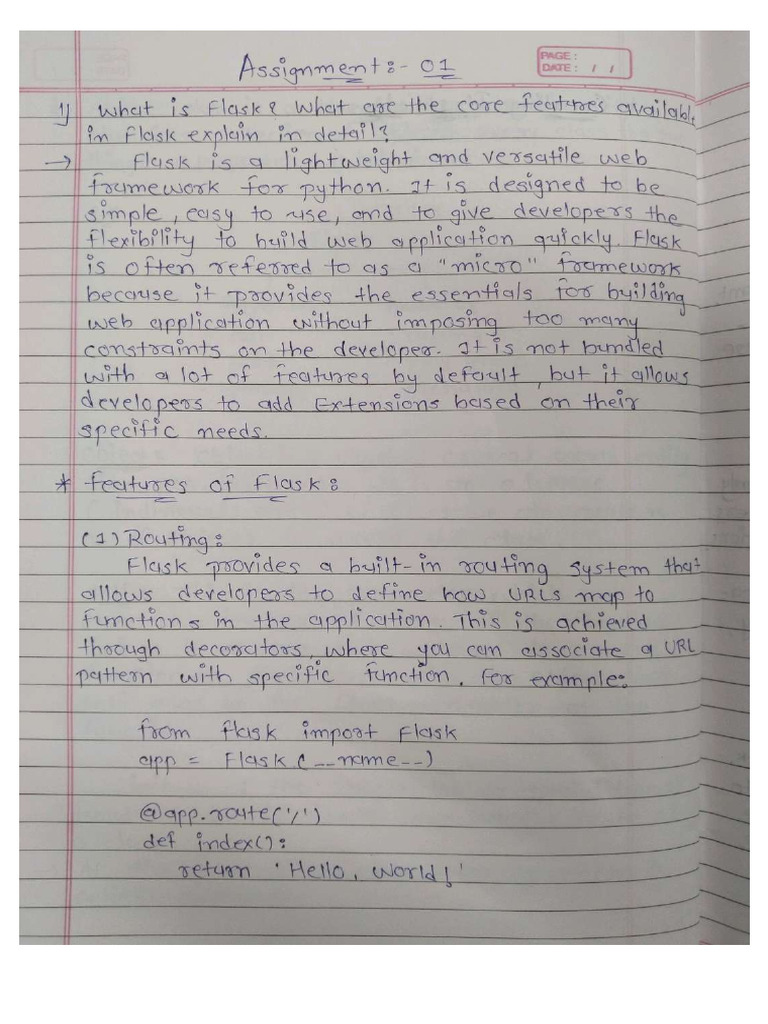 Assignment:- 01
PAGE:
DATE: / /
1) What is Flask? What are the core features available
in Flask explain in detail?
→ Flask is a lightweight and versatile web
framework for python. It is designed to be
simple, easy to use, and to give developers the
flexibility to build web application quickly. Flask
is often referred to as a "micro" framework
because it provides the essentials for building
web application without imposing too many
constraints on the developer. It is not bundled
with a lot of features by default, but it allows
developers to add Extensions based on their
specific needs.
* Features of Flask:
(1) Routing:
Flask provides a built-in routing system that
allows developers to define how URLs map to
functions in the application. This is achieved
through decorators, where you can associate a URL
pattern with specific function. For example:
from flask import Flask
app = Flask(__name__)
@app.route('/')
def index():
return 'Hello, World!'